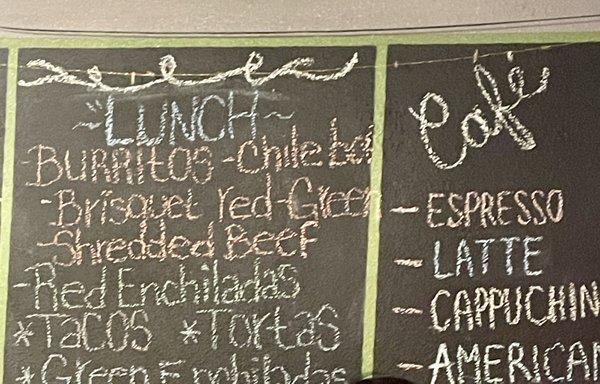 ~LUNCH~
-BURRITOS -Chile
-Brisquet red-Green
-Shredded BEEF
-Red Enchiladas
*TACOS *TORTAS
*Green Enchiladas
Café
- ESPRESSO
- LATTE
- CAPPUCHIN
- AMERICAN